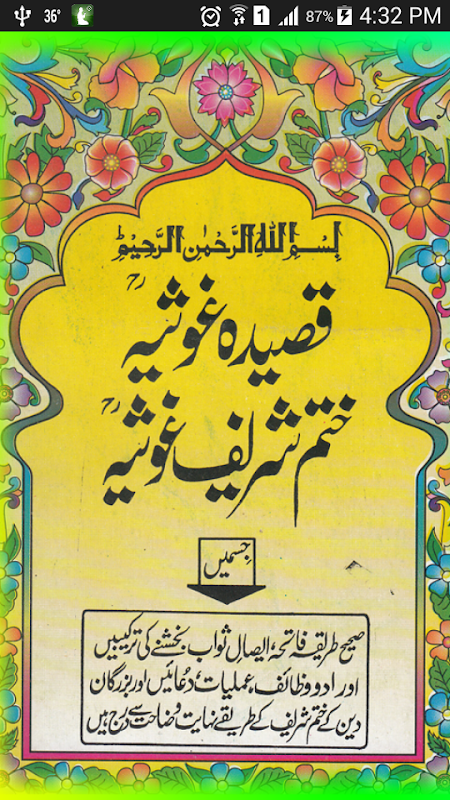 36° 1 87% 4:32 PM
بسم اللہ الرحمٰن الرحیم
قصیدہ غوثیہ رح
ختم شریف غوثیہ رح
جسمیں
صحیح طریقہ فاتحہ، ایصال ثواب بخشنے کی ترکیبیں
اوراد و وظائف، عملیات، دُعائیں اور بزرگان
دین کے ختم شریف کے طریقے نہایت وضاحت سے درج ہیں